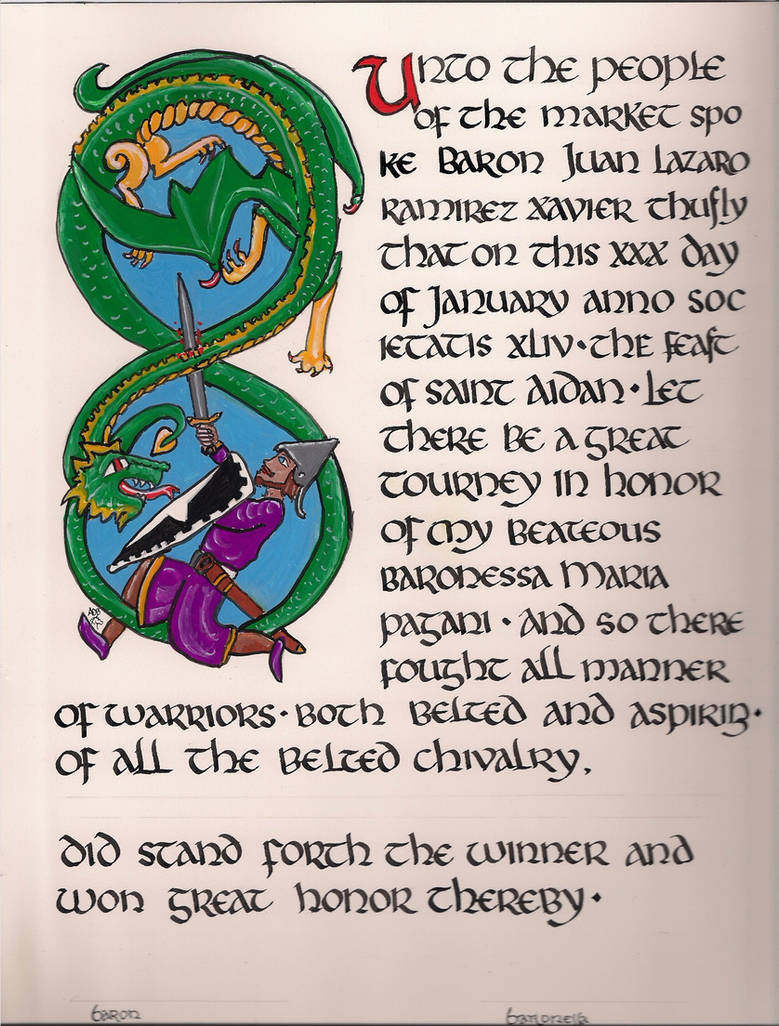 Unto the people
of the market spo
ke Baron Juan Lazaro
Ramirez Xavier thusly
that on this xxx day
of January anno soc
ietatis xliv · the feast
of Saint Aidan · Let
there be a great
tourney in honor
of my beateous
Baronessa Maria
Pagani · and so there
fought all manner
of warriors · both belted and aspirin ·
of all the belted chivalry,
did stand forth the winner and
won great honor thereby ·
baron
baronessa